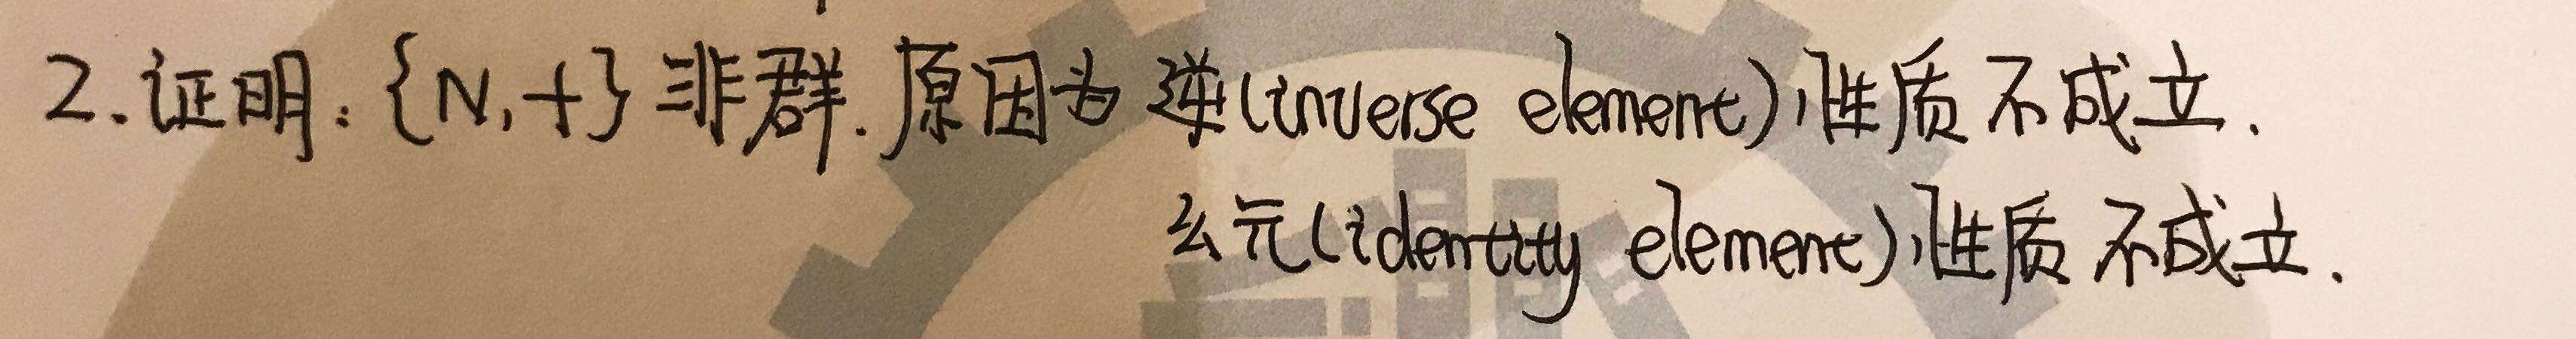 2.证明:{N,+}非群.原因为 逆(inverse element)性质不成立.
幺元(identity element)性质不成立.